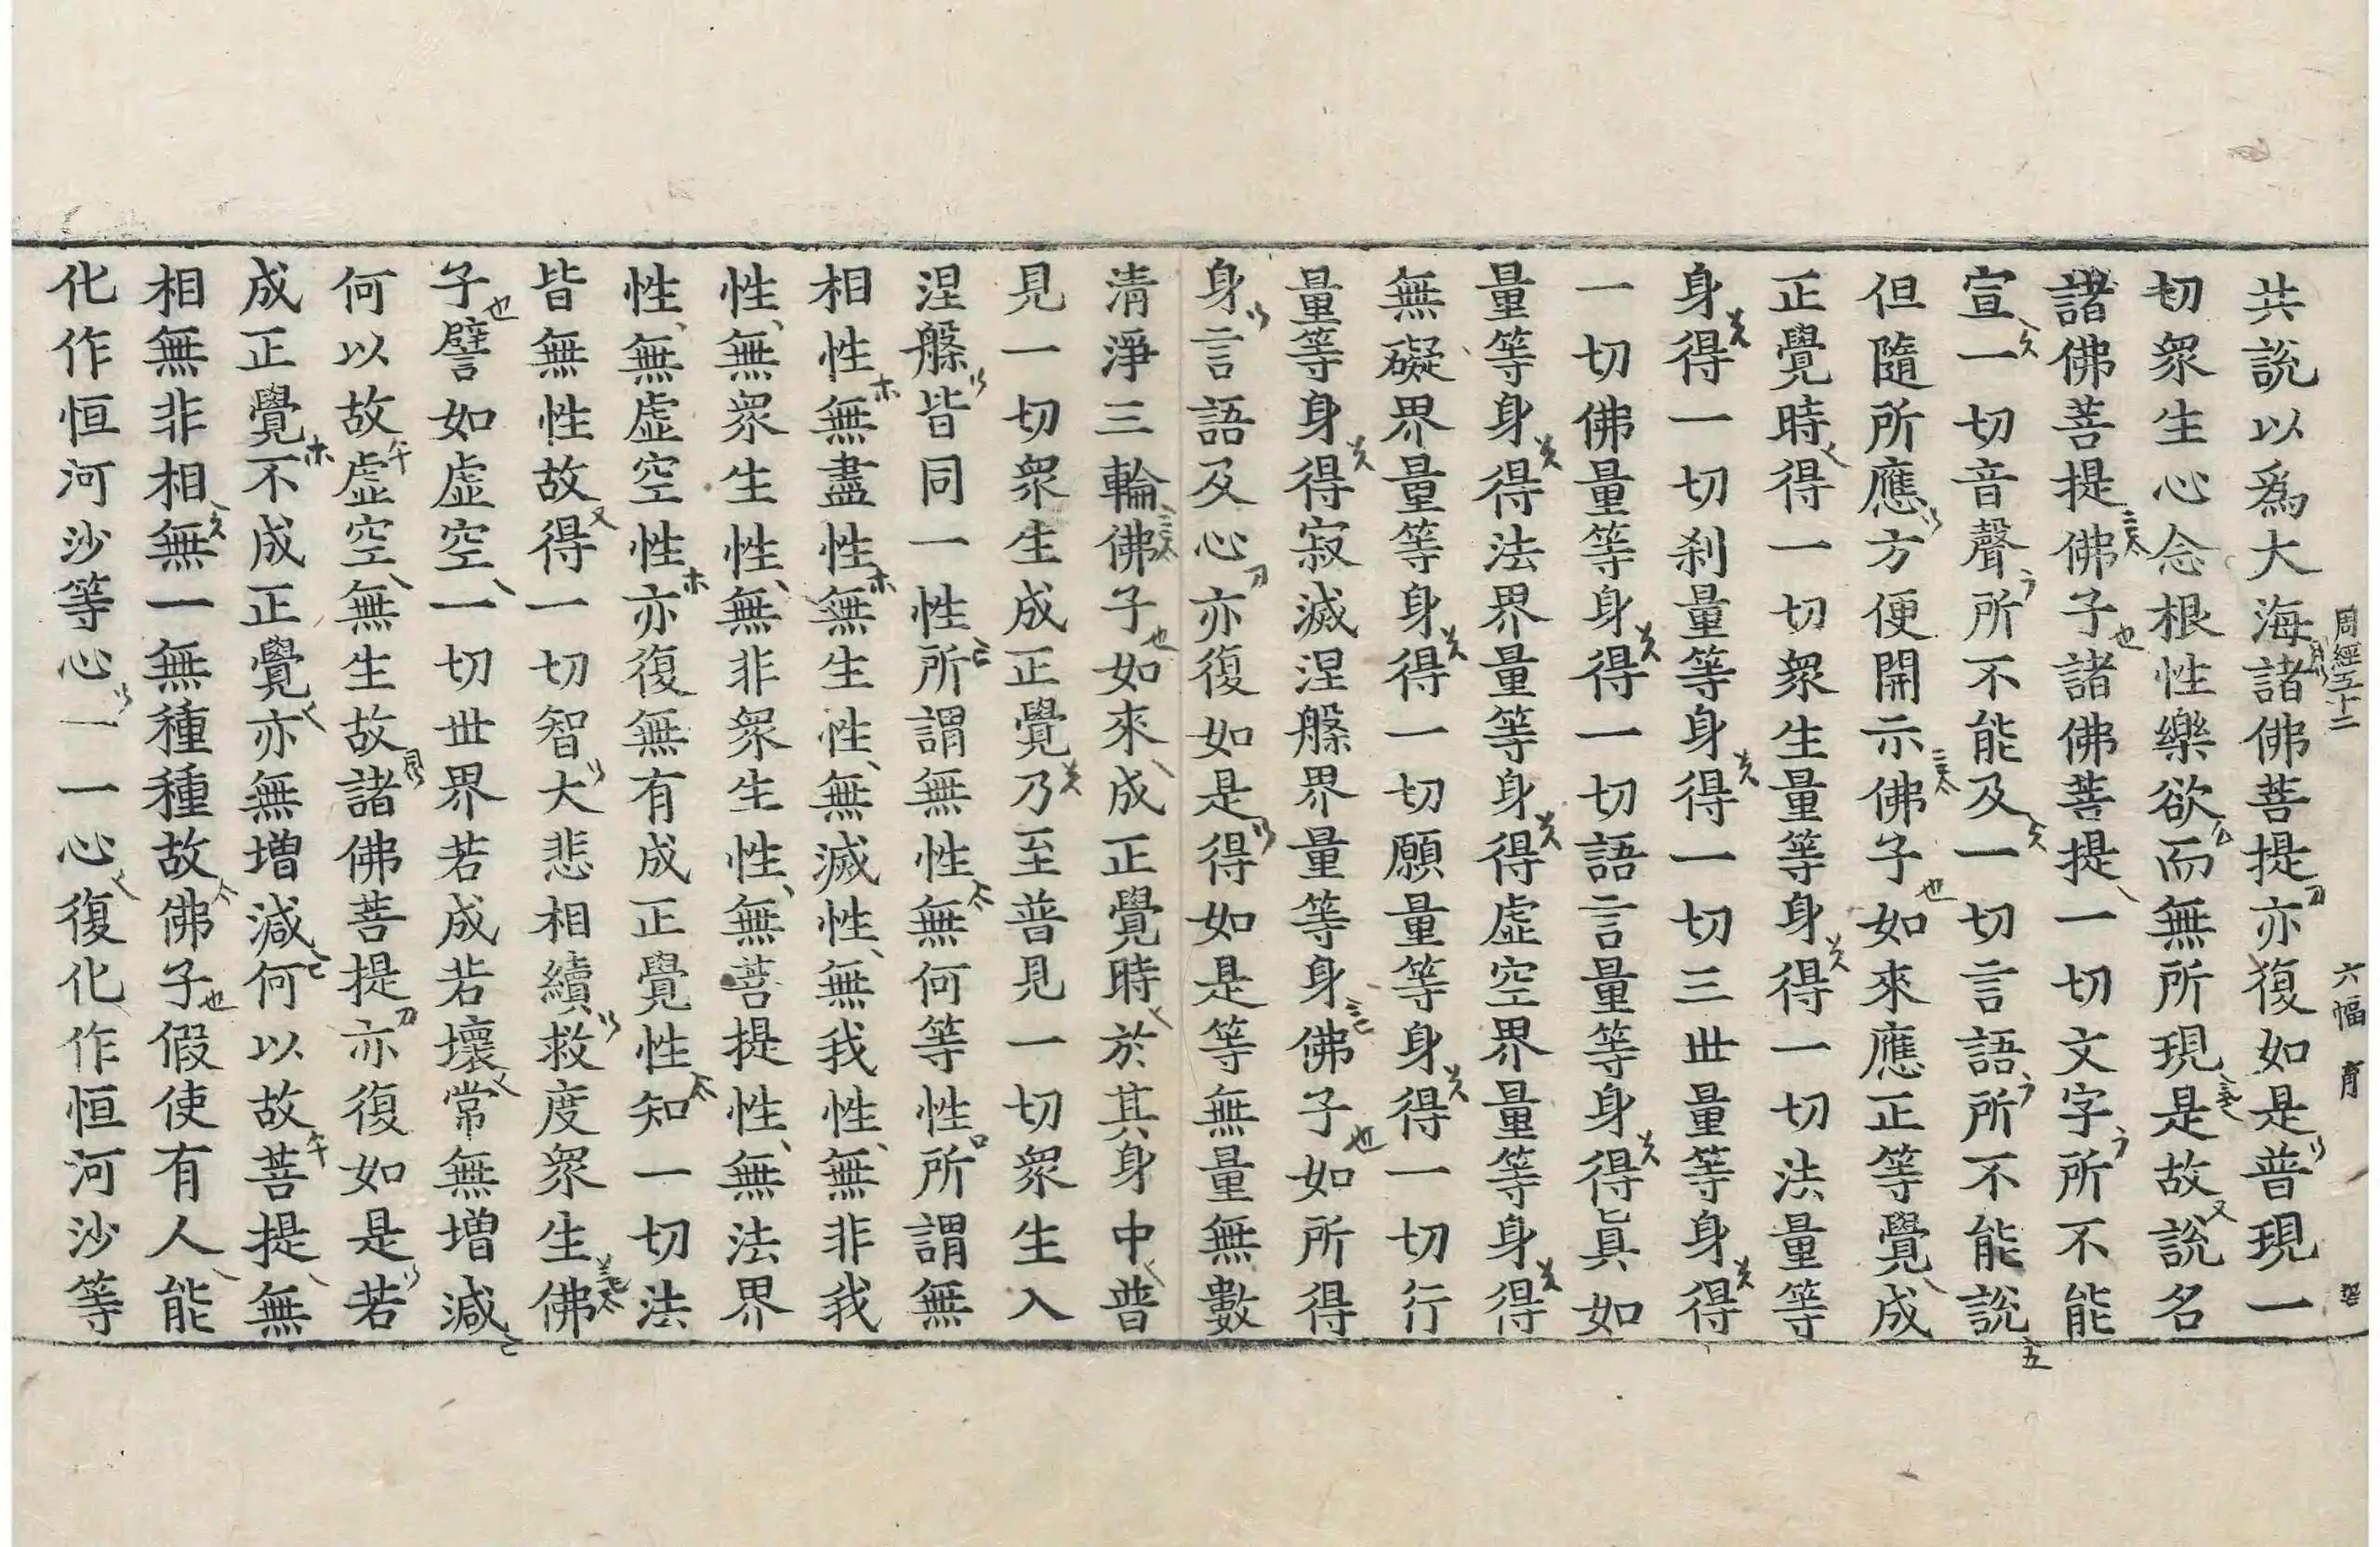 周經五十二 六幅 育
共說以爲大海諸佛菩提亦復如是普現一
切衆生心念根性樂欲而無所現是故說名
諸佛菩提佛子諸佛菩提一切文字所不能
宣一切音聲所不能及一切言語所不能說
但隨所應方便開示佛子如來應正等覺成
正覺時得一切衆生量等身得一切法量等
身得一切刹量等身得一切三世量等身得
一切佛量等身得一切語言量等身得眞如
量等身得法界量等身得虛空界量等身得
無礙界量等身得一切願量等身得一切行
量等身得寂滅涅槃界量等身佛子如所得
身言語及心亦復如是得如是等無量無數
清淨三輪佛子如來成正覺時於其身中普
見一切衆生成正覺乃至普見一切衆生入
涅槃皆同一性所謂無性無何等性所謂無
相性無盡性無生性無滅性無我性無非我
性無衆生性無非衆生性無菩提性無法界
性無虛空性亦復無有成正覺性知一切法
皆無性故得一切智大悲相續救度衆生佛
子譬如虛空一切世界若成若壞常無增減
何以故虛空無生故諸佛菩提亦復如是若
成正覺不成正覺亦無增減何以故菩提無
相無非相無一無種種故佛子假使有人能
化作恒河沙等心一一心復化作恒河沙等